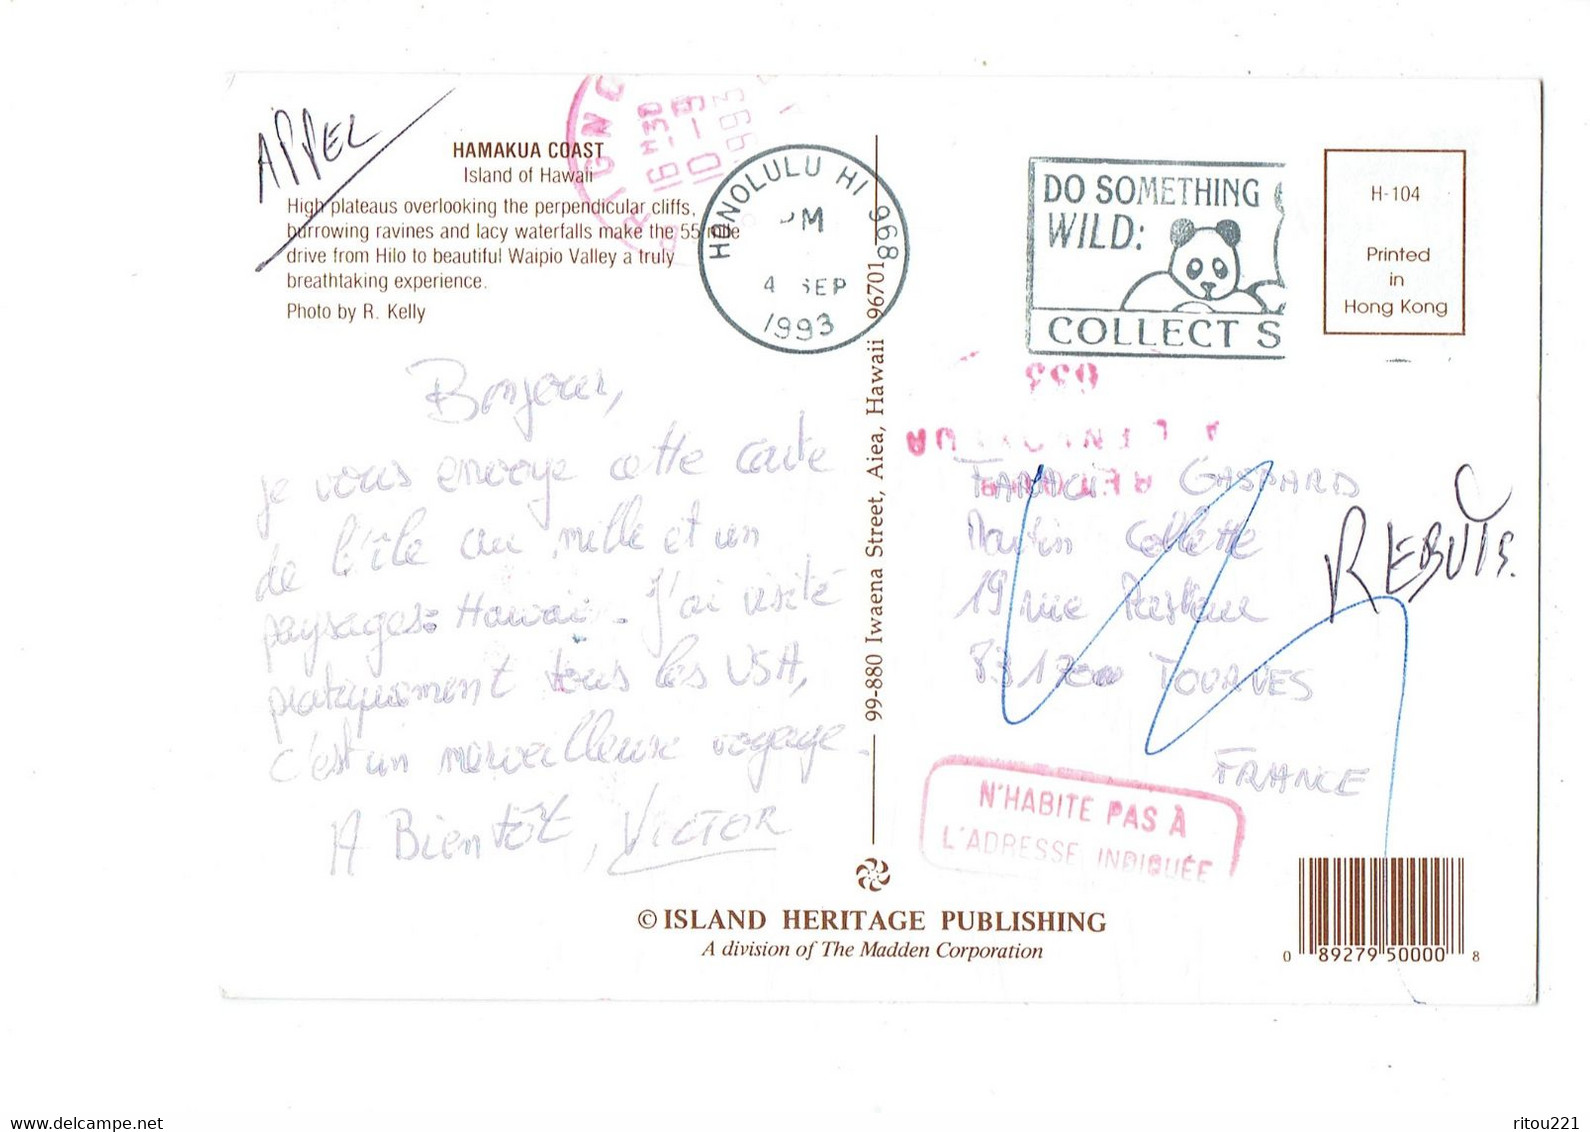 APPEL
HAMAKUA COAST
Island of Hawaii
High plateaus overlooking the perpendicular cliffs,
burrowing ravines and lacy waterfalls make the 55 mile
drive from Hilo to beautiful Waipio Valley a truly
breathtaking experience.
Photo by R. Kelly
16 H30
10 - 9
1993
HONOLULU HI 968
PM
4 SEP
1993
DO SOMETHING
WILD:
COLLECT S
H-104
Printed
in
Hong Kong
Bonjour,
je vous envoye cette carte
de l'île au mille et un
paysages: Hawaï. J'ai visité
pratiquement tous les USA,
c'est un merveilleux voyage.
A Bientôt, VICTOR
99-880 Iwaena Street, Aiea, Hawaii 96701
GASPARD
Martin Collette
19 rue Pasteur
83170 TOURVES
FRANCE
REBUTS.
N'HABITE PAS À
L'ADRESSE INDIQUÉE
© ISLAND HERITAGE PUBLISHING
A division of The Madden Corporation
0 89279 50000 8
delcampe.net
ritou221